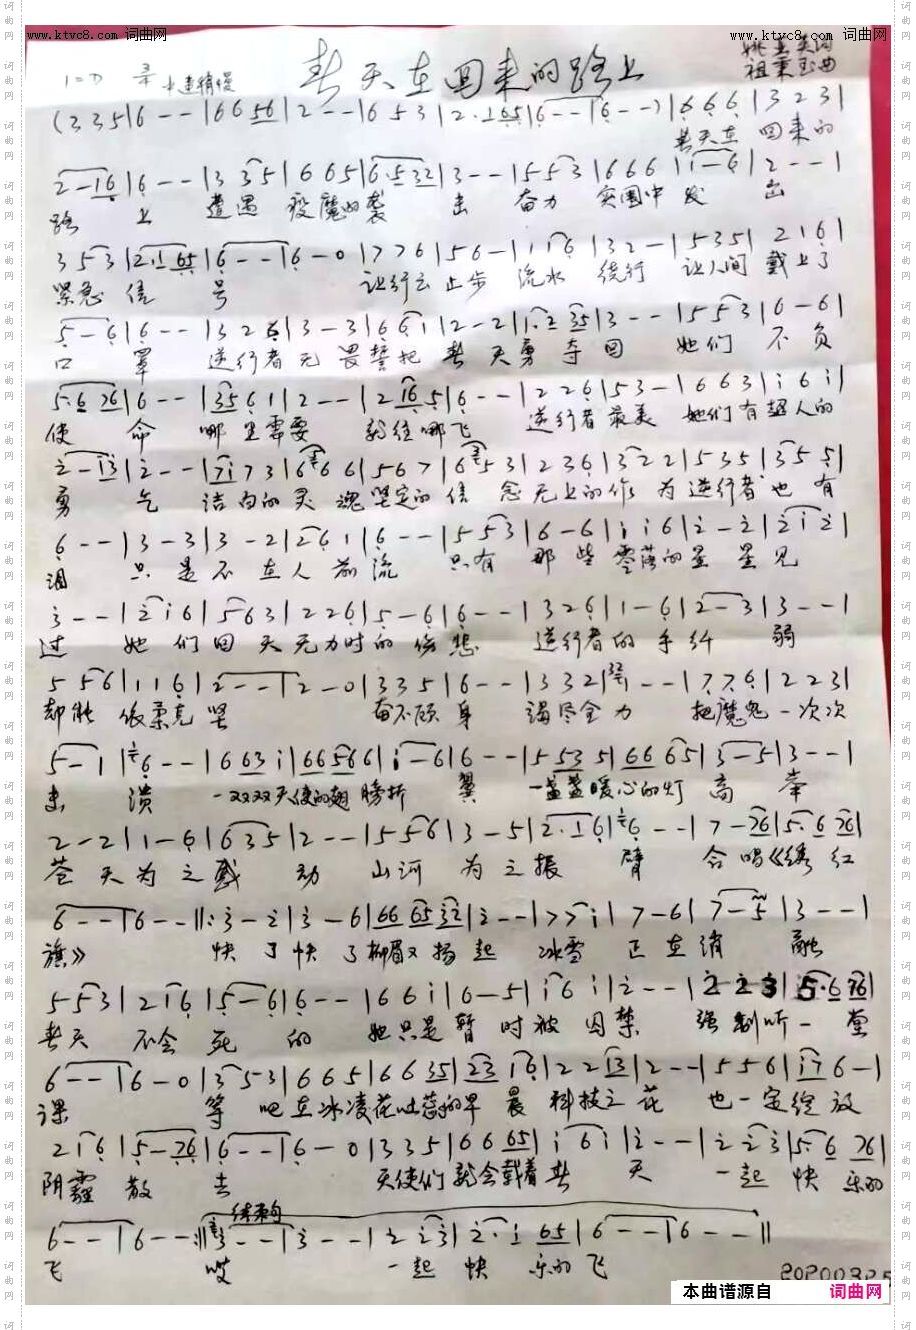 www.ktvc8.com 词曲网
www.ktvc8.com 词曲网
春天在回来的路上
姚 英词
祖秉玉曲
1=D 中速稍慢
(3 3 5|6 - -|6 6 56|2 - -|6 5 3|2·1 65|6 - -|6 - -)|6 6 6|3 2 3|
春天在 回来的
2 - 16|6 - -|3 3 5|6 6 5|6·5 32|3 - -|5 5 3|6 6 6|1 - 6|2 - -|
路 上 遭遇 疫魔的袭 击 奋力 突围中 发 出
3 5 3|2·1 65|6 - -|6 - 0|7 7 6|5 6 -|1 1 6|3 2 -|5 3 5|2 1 6|
紧急 信 号 让行云 止步 流水 绕行 让人间 戴上了
5 - 6|6 - -|3 2 6|3 - 3|6 6 1|2 - 2|1·2 35|3 - -|5 5 3|6 - 6|
口 罩 逆行者 无 畏誓把 春 天勇 夺回 她们 不 负
5·6 76|6 - -|35 6 1|2 - -|2 16 5|6 - -|2 2 6|5 3 -|6 6 3|i 6 i|
使 命 哪里需要 就往哪飞 逆行者 最美 她们有 超人的
2 - 13|2 - -|7i 7 3|6 6 6|5 6 7|6 5 3|2 3 6|3 2 2|5 3 5|3 5 5|
勇 气 洁白的 灵 魂 坚定的 信 念 无上的 作 为 逆行者 也 有
6 - -|3 - 3|3 - 2|2 6 1|6 - -|5 5 3|6 - 6|i i 6|2 - 2|2 i 2|
泪 只 是 不 在人 前 流 只有 那 些 零落的 星 星 见
3 - -|2 i 6|5 6 3|2 2 6|5 - 6|6 - -|3 2 6|1 - 6|2 - 3|3 - -|
过 她 们 回 天 无力时 的 伤 悲 逆行者 的 手 纤 弱
5 5 6|1 1 6|2 - -|2 - 0|3 3 5|6 - -|3 3 2|3 - -|7 7 6|2 2 3|
却能 依柔克 坚 奋不顾 身 竭尽全 力 把魔鬼 一次次
5 - 1|6 - -|6 63 i|66 56 6|i - 6|6 - -|5 53 5|66 65|3 - 5|3 - -|
击 溃 一双双 天使的翅 膀折 翼 一盏盏暖心的灯 高 举
2 - 2|1 - 6|6 3 5|2 - -|5 5 6|3 - 5|2·1 6|6 - -|7 - 76|5·6 76|
苍 天 为 之 感 动 山河 为 之 振 臂 合 唱《绣 红
6 - -|6 - -‖:3 - 2|3 - 6|66 65 32|2 - -|7 7 i|7 - 6|7 - 5|3 - -|
旗》 快 了 快 了 柳眉又 扬 起 冰雪 正 在 消 融
5 5 3|2 1 6|5 - 6|6 - -|6 6 i|6 - 5|i 6 i|2 - -|2 2 3|5·6 76|
春天 不会 死 的 她只是 暂 时 被 囚 禁 强制听 一 堂
6 - -|6 - 0|3 5 3|6 6 5|6 6 35|23 16|2 2 13|2 - -|5 5 6|i7 6 -|
课 等 吧 在冰凌花吐蕊的早 晨 科技之 花 也一定绽 放
2 1 6|5 - 76|6 - -|6 - 0|3 3 5|6 6 65|i 6 i|2 - -|2 2 3|5·6 76|
阴霾 散 去 天使们 就会载着 春 天 一起 快 乐的
结束句
6 - -|6 - -:‖3 - -|3 - -|2 2 3|2·i 65|6 - -|6 - -‖
飞 哎 一起 快 乐的 飞
20200325
本曲谱源自 词曲网